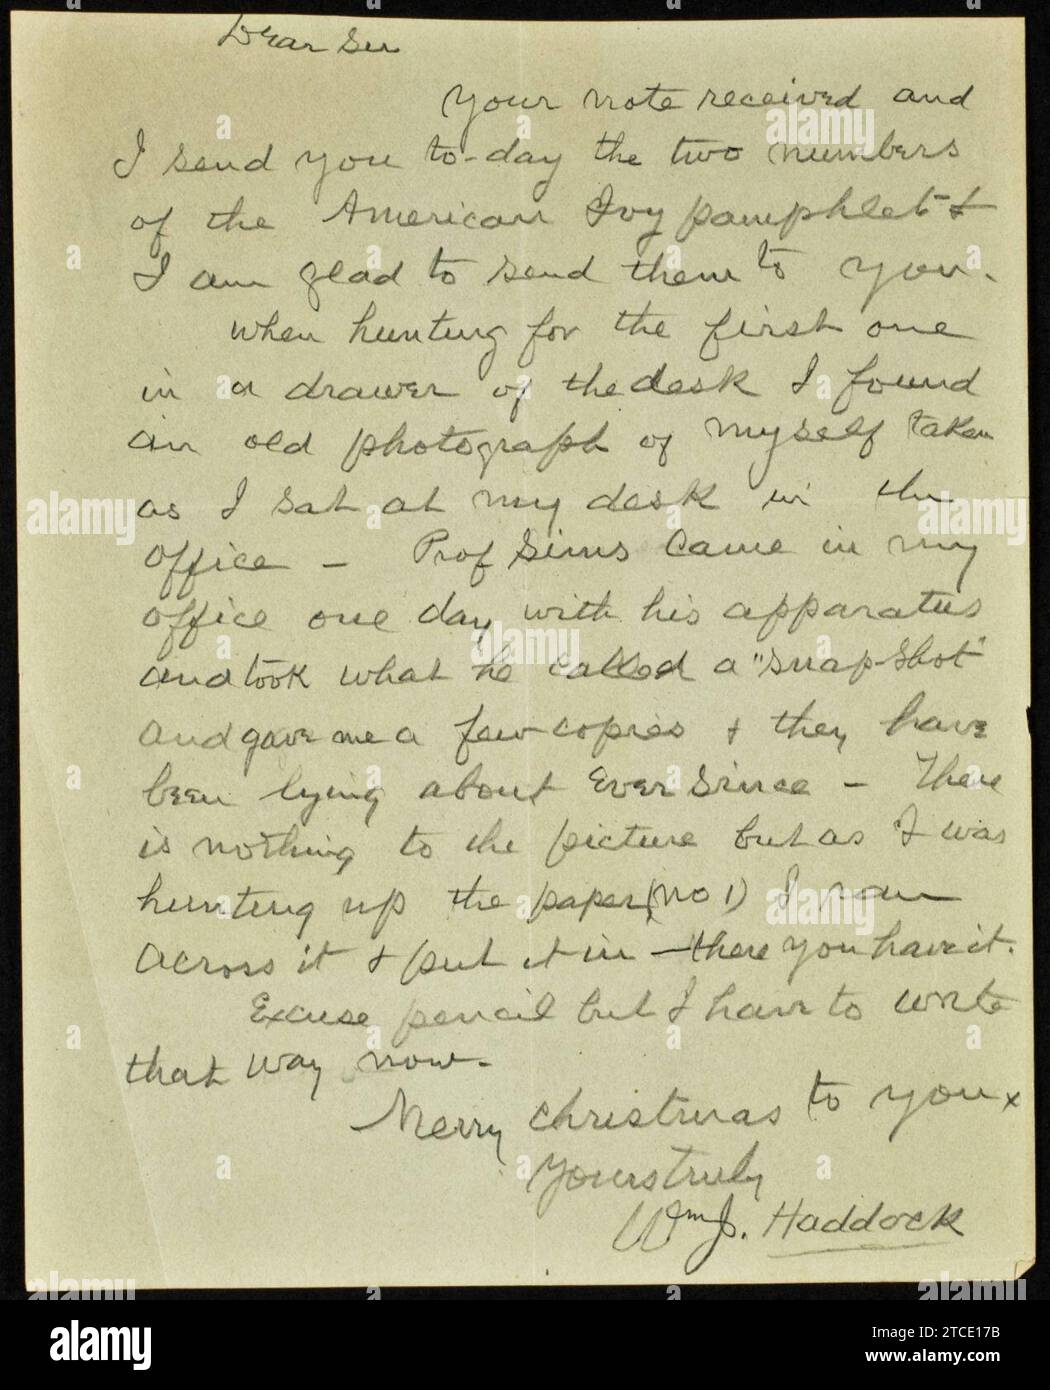 Dear Sir
Your note received and
I send you to-day the two numbers
of the American Ivy pamphlet &
I am glad to send them to you.
When hunting for the first one
in a drawer of the desk I found
an old photograph of myself taken
as I sat at my desk in the
office – Prof Sims came in my
office one day with his apparatus
and took what he called a "snap-shot"
and gave me a few copies & they have
been lying about Ever Since – There
is nothing to the picture but as I was
hunting up the paper (no 1) I ran
across it & put it in – there you have it.
Excuse pencil but I have to write
that way now.
Merry Christmas to you
Yours truly
Wm J. Haddock
alamy
Image ID: 2TCE17B
www.alamy.com